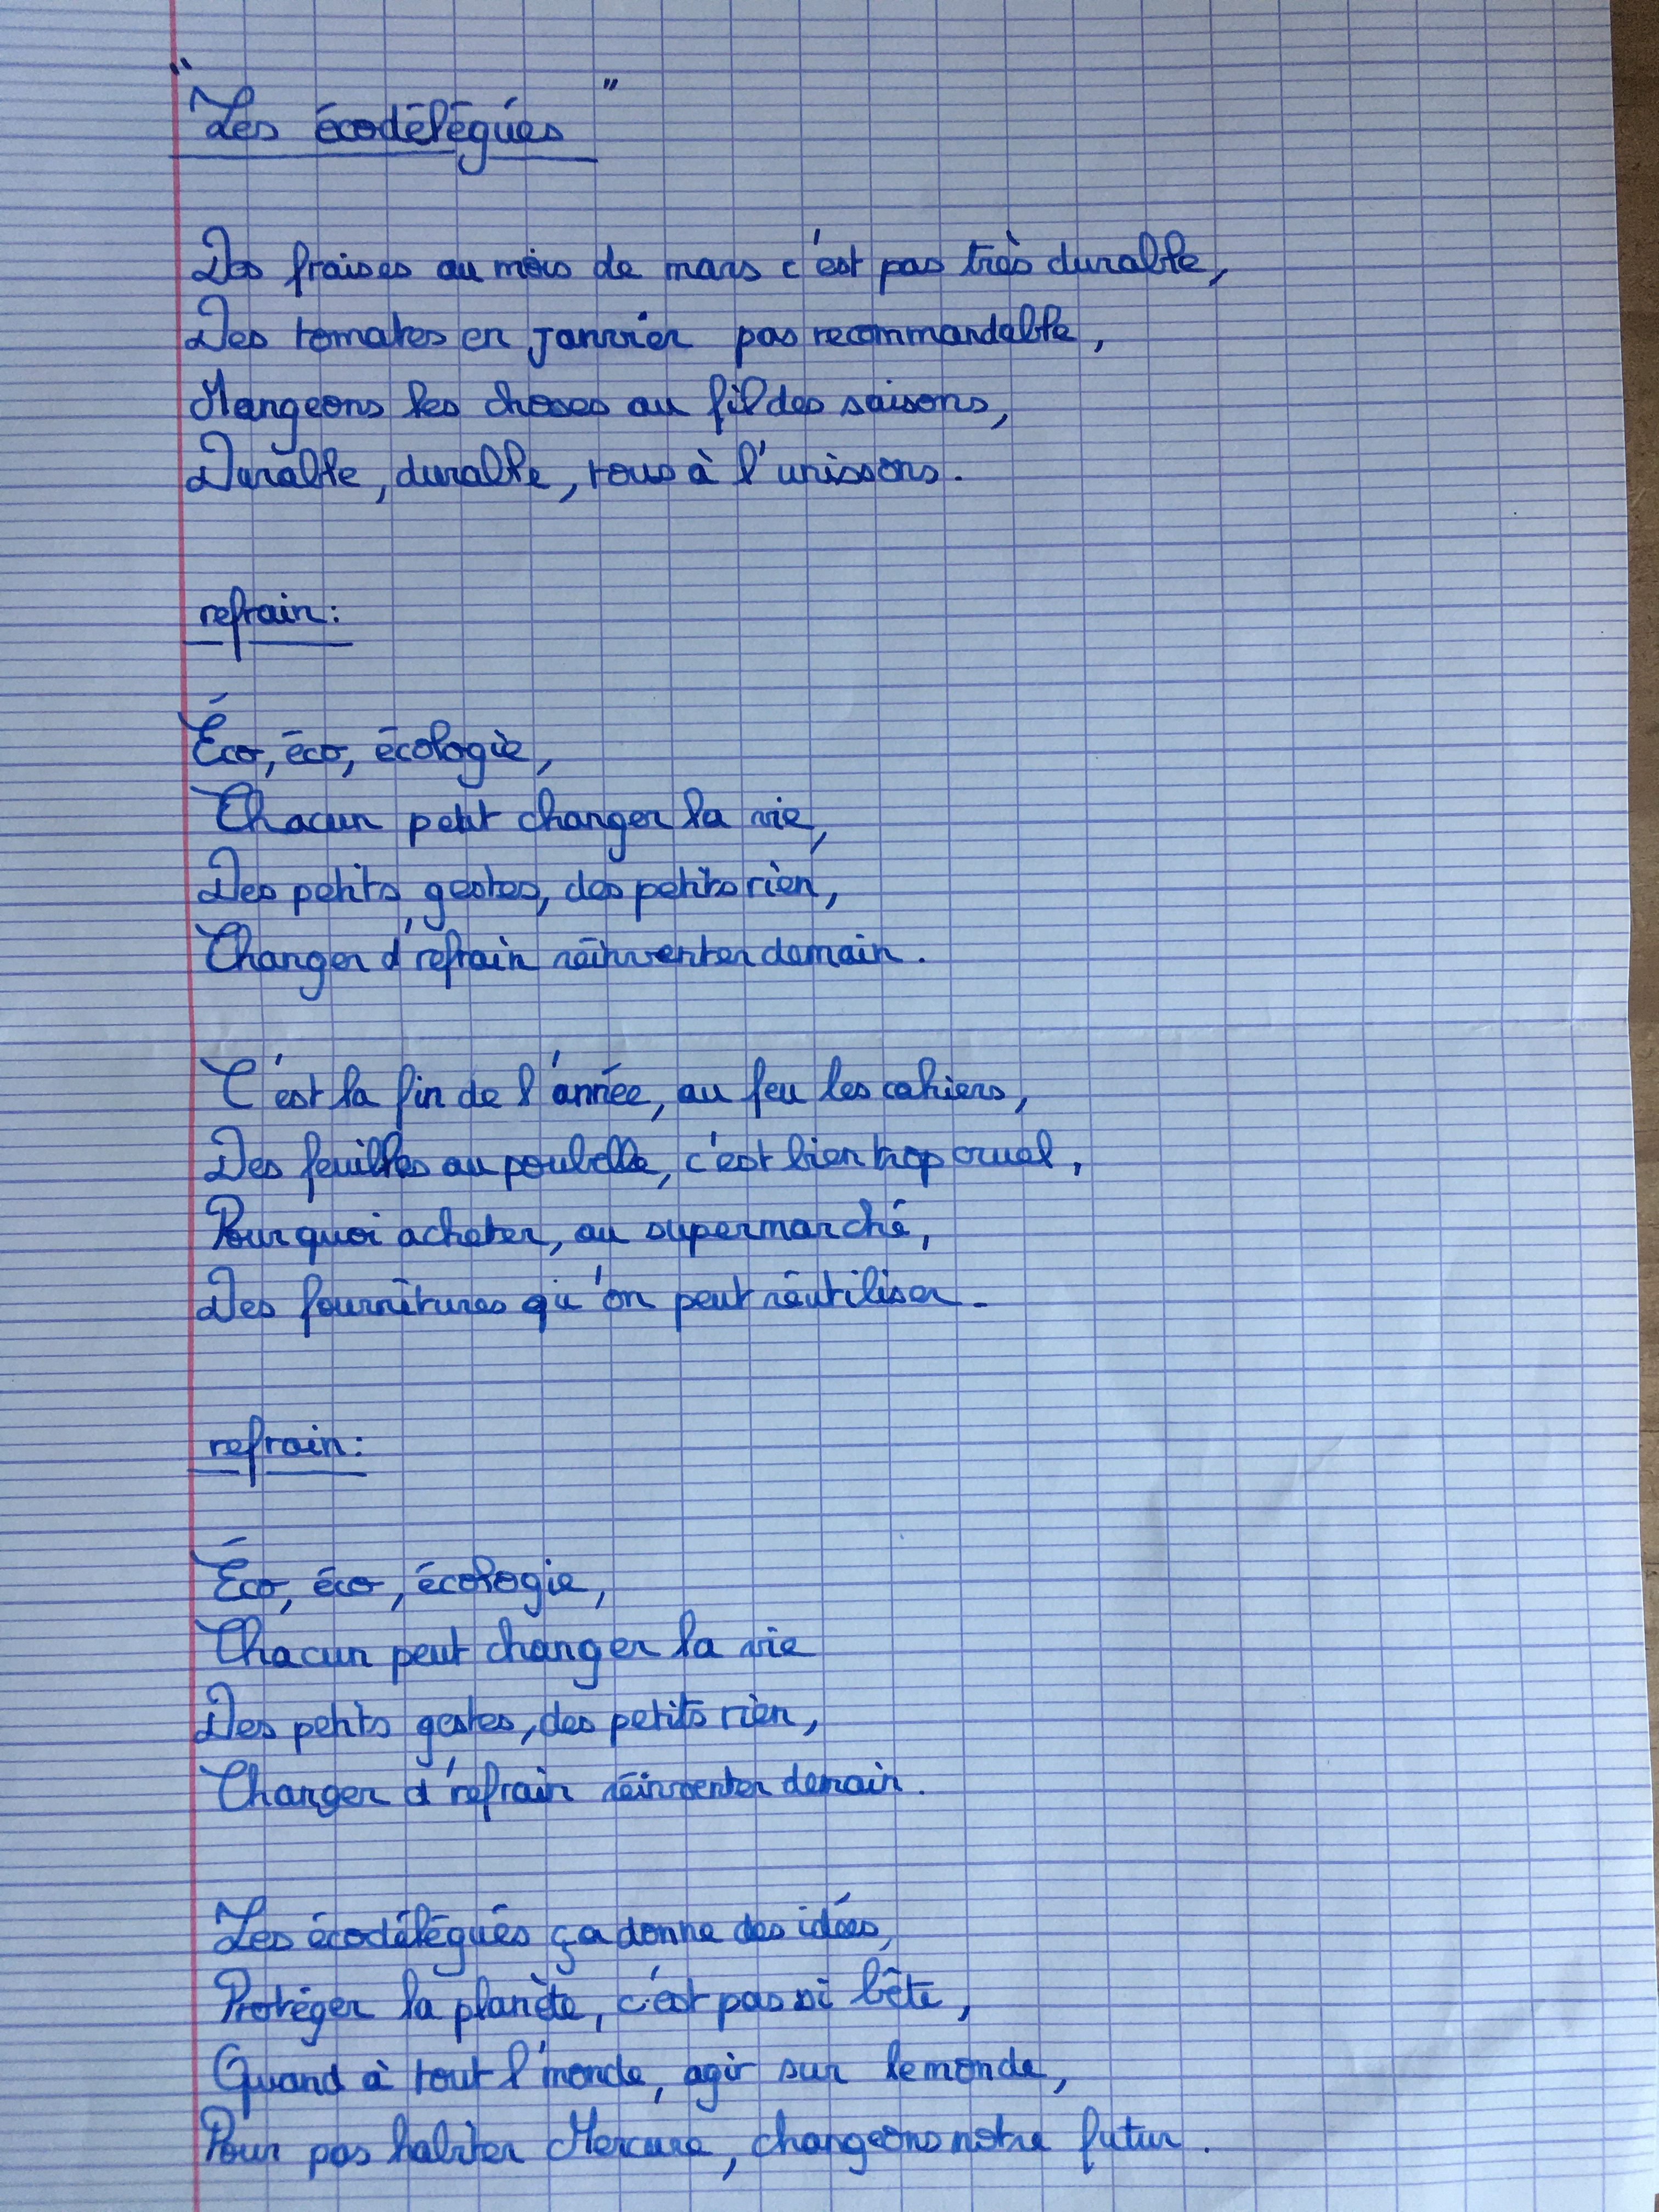 "Les écodélégués"
Des fraises au mois de mars c'est pas très durable,
Des tomates en janvier pas recommandable,
Mangeons les choses au fil des saisons,
Durable, durable, tous à l'unissons.
refrain:
Éco, éco, écologie,
Chacun peut changer la vie,
Des petits gestes, des petits rien,
Changer d'refrain réinventer demain.
C'est la fin de l'année, au feu les cahiers,
Des feuilles au poubelle, c'est bien trop cruel,
Pourquoi acheter, au supermarché,
Des fournitures qu'on peut réutiliser.
refrain:
Éco, éco, écologie,
Chacun peut changer la vie
Des petits gestes, des petits rien,
Changer d'refrain réinventer demain.
Les écodélégués ça donne des idées,
Protéger la planète, c'est pas si bête,
Quand à tout l'monde, agir sur le monde,
Pour pas habiter Mercure, changeons notre futur.